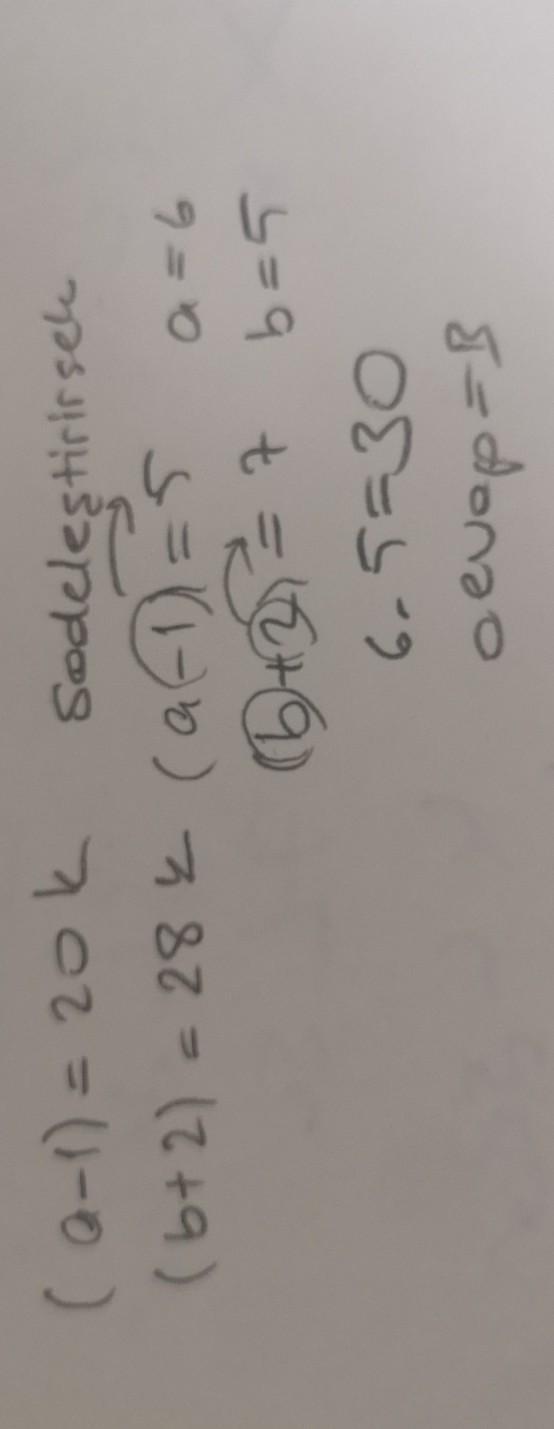 (a-1) = 20k Sadeleştirirsek
(b+2) = 28k (a-1) = 5 a=6
(b+2) = 7 b=5
6.5=30
cevap=B